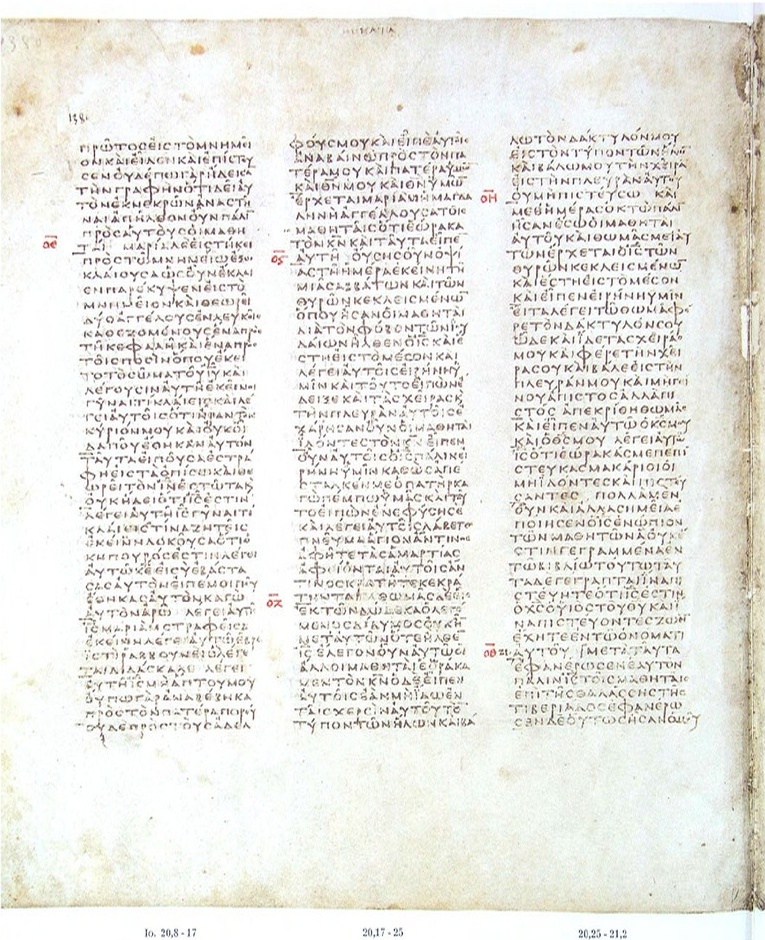 138
ΠΡΩΤΟϹΕΙϹΤΟΜΝΗΜΕΙ
ΟΝΚΑΙΕΙΔΕΝΚΑΙΕΠΙϹΤΕΥ
ϹΕΝΟΥΔΕΠΩΓΑΡΗΔΕΙϹΑ
ΤΗΝΓΡΑΦΗΝΟΤΙΔΕΙΑΥ
ΤΟΝΕΚΝΕΚΡΩΝΑΝΑϹΤΗ
ΝΑΙΑΠΗΛΘΟΝΟΥΝΠΑΛΙ
ΠΡΟϹΑΥΤΟΥϹΟΙΜΑΘΗ
ΟΕ ΤΑΙ ΜΑΡΙΑΔΕΕΙϹΤΗΚΕΙ
ΠΡΟϹΤΩΜΝΗΜΕΙΩΕΞΩ
ΚΛΑΙΟΥϹΑΩϹΟΥΝΕΚΛΑΙ
ΕΝΠΑΡΕΚΥΨΕΝΕΙϹΤΟ
ΜΝΗΜΕΙΟΝΚΑΙΘΕΩΡΕΙ
ΔΥΟΑΓΓΕΛΟΥϹΕΝΛΕΥΚΟΙϹ
ΚΑΘΕΖΟΜΕΝΟΥϹΕΝΑΠΡΟϹ
ΤΗΚΕΦΑΛΗΚΑΙΕΝΑΠΡΟϹ
ΤΟΙϹΠΟϹΙΝΟΠΟΥΕΚΕΙ
ΤΟΤΟϹΩΜΑΤΟΥΙΥΚΑΙ
ΛΕΓΟΥϹΙΝΑΥΤΗΕΚΕΙΝΟΙ
ΓΥΝΑΙΤΙΚΛΑΙΕΙϹΚΑΙΛΕ
ΓΕΙΑΥΤΟΙϹΟΤΙΗΡΑΝΤΟΝ
ΚΥΡΙΟΝΜΟΥΚΑΙΟΥΚΟΙ
ΔΑΠΟΥΕΘΗΚΑΝΑΥΤΟΝ
ΤΑΥΤΑΕΙΠΟΥϹΑΕϹΤΡΑ
ΦΗΕΙϹΤΑΟΠΙϹΩΚΑΙΘΕ
ΩΡΕΙΤΟΝΙΝΕϹΤΩΤΑΚ
ΟΥΚΗΔΕΙΟΤΙΙϹΕϹΤΙΝ
ΛΕΓΕΙΑΥΤΗΙϹΓΥΝΑΙΤΙ
ΚΛΑΙΕΙϹΤΙΝΑΖΗΤΕΙϹ
ΕΚΕΙΝΗΔΟΚΟΥϹΑΟΤΙΟ
ΚΗΠΟΥΡΟϹΕϹΤΙΝΛΕΓΕΙ
ΑΥΤΩΚΕΕΙϹΥΕΒΑϹΤΑ
ϹΑϹΑΥΤΟΝΕΙΠΕΜΟΙΠΟΥ
ΕΘΗΚΑϹΑΥΤΟΝΚΑΓΩ
ΑΥΤΟΝΑΡΩ ΛΕΓΕΙΑΥΤΗ
ΙϹΜΑΡΙΑΜϹΤΡΑΦΕΙϹΑ
ΕΚΕΙΝΗΛΕΓΕΙΑΥΤΩΕΒΡΑ
ΙϹΤΙΡΑΒΒΟΥΝΕΙΟΛΕΓΕ
ΤΑΙΔΙΔΑϹΚΑΛΕ ΛΕΓΕΙ
ΑΥΤΗΙϹΜΗΑΠΤΟΥΜΟΥ
ΟΥΠΩΓΑΡΑΝΑΒΕΒΗΚΑ
ΠΡΟϹΤΟΝΠΑΤΕΡΑΠΟΡΕΥ
ΟΥΔΕΠΡΟϹΤΟΥϹΑΔΕΛ
ΦΟΥϹΜΟΥΚΑΙΕΙΠΕΑΥΤΟΙϹ
ΑΝΑΒΑΙΝΩΠΡΟϹΤΟΝΠΑ
ΤΕΡΑΜΟΥΚΑΙΠΑΤΕΡΑΥΜΩ
ΚΑΙΘΝΜΟΥΚΑΙΘΝΥΜΩ
ΕΡΧΕΤΑΙΜΑΡΙΑΜΗΜΑΓΔΑ
ΛΗΝΗΑΓΓΕΛΛΟΥϹΑΤΟΙϹ
ΜΑΘΗΤΑΙϹΟΤΙΕΩΡΑΚΑ
ΤΟΝΚΝΚΑΙΤΑΥΤΑΕΙΠΕ
ΟϚ ΑΥΤΗ ΟΥϹΗϹΟΥΝΟΨΙ
ΑϹΤΗΗΜΕΡΑΕΚΕΙΝΗΤΗ
ΜΙΑϹΑΒΒΑΤΩΝΚΑΙΤΩΝ
ΘΥΡΩΝΚΕΚΛΕΙϹΜΕΝΩ
ΟΠΟΥΗϹΑΝΟΙΜΑΘΗΤΑΙ
ΔΙΑΤΟΝΦΟΒΟΝΤΩΝΙΟΥ
ΔΑΙΩΝΗΛΘΕΝΟΙϹΚΑΙΕ
ϹΤΗΕΙϹΤΟΜΕϹΟΝΚΑΙ
ΛΕΓΕΙΑΥΤΟΙϹΕΙΡΗΝΗΥ
ΜΙΝΚΑΙΤΟΥΤΟΕΙΠΩΝΕ
ΔΕΙΞΕΚΑΙΤΑϹΧΕΙΡΑϹΚ
ΤΗΝΠΛΕΥΡΑΝΑΥΤΟΙϹΕ
ΧΑΡΗϹΑΝΟΥΝΟΙΜΑΘΗΤΑΙ
ΙΔΟΝΤΕϹΤΟΝΚΝΕΙΠΕΝ
ΟΥΝΑΥΤΟΙϹΟΙϹΠΑΛΙΝΕΙ
ΡΗΝΗΥΜΙΝΚΑΘΩϹΑΠΕ
ϹΤΑΛΚΕΝΜΕΟΠΑΤΗΡΚΑ
ΓΩΠΕΜΠΩΥΜΑϹΚΑΙΤΟΥ
ΤΟΕΙΠΩΝΕΝΕΦΥϹΗϹΕ
ΚΑΙΛΕΓΕΙΑΥΤΟΙϹΛΑΒΕΤΕ
ΠΝΕΥΜΑΑΓΙΟΝΑΝΤΙΝΟϹ
ΑΦΗΤΕΤΑϹΑΜΑΡΤΙΑϹ
ΑΦΕΙΟΝΤΑΙΑΥΤΟΙϹΑΝ
ΤΙΝΟϹΚΡΑΤΗΤΕΚΕΚΡΑ
ΟΖ ΤΗΝΤΑΙ ΘΩΜΑϹΔΕΕΙϹ
ΕΚΤΩΝΔΩΔΕΚΑΟΛΕΓΟ
ΜΕΝΟϹΔΙΔΥΜΟϹΟΥΚΗ
ΜΕΤΑΥΤΩΝΟΤΕΗΛΘΕ
ΙϹΕΛΕΓΟΝΟΥΝΑΥΤΩΟΙ
ΑΛΛΟΙΜΑΘΗΤΑΙΕΩΡΑΚΑ
ΜΕΝΤΟΝΚΝΟΔΕΕΙΠΕΝ
ΑΥΤΟΙϹΕΑΝΜΗΙΔΩΕΝ
ΤΑΙϹΧΕΡϹΙΝΑΥΤΟΥΤΟ
ΤΥΠΟΝΤΩΝΗΛΩΝΚΑΙΒΑ
ΛΩΤΟΝΔΑΚΤΥΛΟΝΜΟΥ
ΕΙϹΤΟΝΤΥΠΟΝΤΩΝΗΛΩ
ΚΑΙΒΑΛΩΜΟΥΤΗΝΧΕΙΡΑ
ΕΙϹΤΗΝΠΛΕΥΡΑΝΑΥΤΟΥ
ΟΗ ΟΥΜΗΠΙϹΤΕΥϹΩ ΚΑΙ
ΜΕΘΗΜΕΡΑϹΟΚΤΩΠΑΛΙ
ΗϹΑΝΕϹΩΟΙΜΑΘΗΤΑΙ
ΑΥΤΟΥΚΑΙΘΩΜΑϹΜΕΤΑΥ
ΤΩΝΕΡΧΕΤΑΙΟΙϹΤΩΝ
ΘΥΡΩΝΚΕΚΛΕΙϹΜΕΝΩ
ΚΑΙΕϹΤΗΕΙϹΤΟΜΕϹΟΝ
ΚΑΙΕΙΠΕΝΕΙΡΗΝΗΥΜΙΝ
ΕΙΤΑΛΕΓΕΙΤΩΘΩΜΑΦΕ
ΡΕΤΟΝΔΑΚΤΥΛΟΝϹΟΥ
ΩΔΕΚΑΙΙΔΕΤΑϹΧΕΙΡΑϹ
ΜΟΥΚΑΙΦΕΡΕΤΗΝΧΕΙ
ΡΑϹΟΥΚΑΙΒΑΛΕΕΙϹΤΗΝ
ΠΛΕΥΡΑΝΜΟΥΚΑΙΜΗΓΕΙ
ΝΟΥΑΠΙϹΤΟϹΑΛΛΑΠΙ
ϹΤΟϹ ΑΠΕΚΡΙΘΗΘΩΜΑϹ
ΚΑΙΕΙΠΕΝΑΥΤΩΟΚϹΜΟΥ
ΚΑΙΟΘϹΜΟΥ ΛΕΓΕΙΑΥΤΩ
ΙϹΟΤΙΕΩΡΑΚΑϹΜΕΠΕΠΙ
ϹΤΕΥΚΑϹΜΑΚΑΡΙΟΙΟΙ
ΜΗΙΔΟΝΤΕϹΚΑΙΠΙϹΤΕΥ
ϹΑΝΤΕϹ ΠΟΛΛΑΜΕΝ
ΟΥΝΚΑΙΑΛΛΑϹΗΜΕΙΑΕ
ΠΟΙΗϹΕΝΟΙϹΕΝΩΠΙΟΝ
ΤΩΝΜΑΘΗΤΩΝΑΟΥΚΕ
ϹΤΙΝΓΕΓΡΑΜΜΕΝΑΕΝ
ΤΩΒΙΒΛΙΩΤΟΥΤΩΤΑΥ
ΤΑΔΕΓΕΓΡΑΠΤΑΙΙΝΑΠΙ
ϹΤΕΥΗΤΕΟΤΙΙϹΕϹΤΙΝ
ΟΧϹΟΥΙΟϹΤΟΥΘΥΚΑΙΙ
ΝΑΠΙϹΤΕΥΟΝΤΕϹΖΩΗ
ΕΧΗΤΕΕΝΤΩΟΝΟΜΑΤΙ
ΟΘ 21 ΑΥΤΟΥ ΜΕΤΑΤΑΥΤΑ
ΕΦΑΝΕΡΩϹΕΝΕΑΥΤΟΝ
ΠΑΛΙΝΙϹΤΟΙϹΜΑΘΗΤΑΙϹ
ΕΠΙΤΗϹΘΑΛΑϹϹΗϹΤΗϹ
ΤΙΒΕΡΙΑΔΟϹΕΦΑΝΕΡΩ
ϹΕΝΔΕΟΥΤΩϹΗϹΑΝΟΜΟΥ
Io. 20,8 - 17
20,17 - 25
20,25 - 21,2